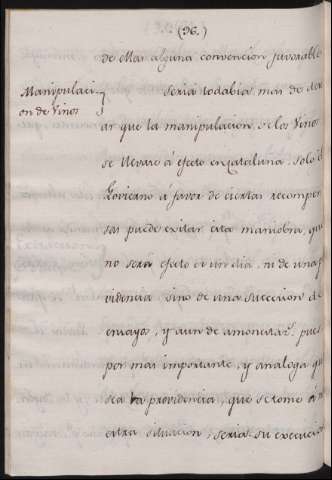 (96.)
de Mar alguna convencion favorable
Manipulaci-
on de Vinos
Seria todabia mas de dese
ar que la manipulacion de los Vinos
se llevare á efecto en Cataluna: solo el
Govierno á favor de ciertas recompen
sas puede exitar esta maniobra, que
no sera efecto de un dia, ni de una p
videncia, sino de una succecion de
ensayos, y aun de amonestas.s pues
por mas importante, y analoga qu
sea la providencia, que se tome á n
estra situacion, seria su execucion